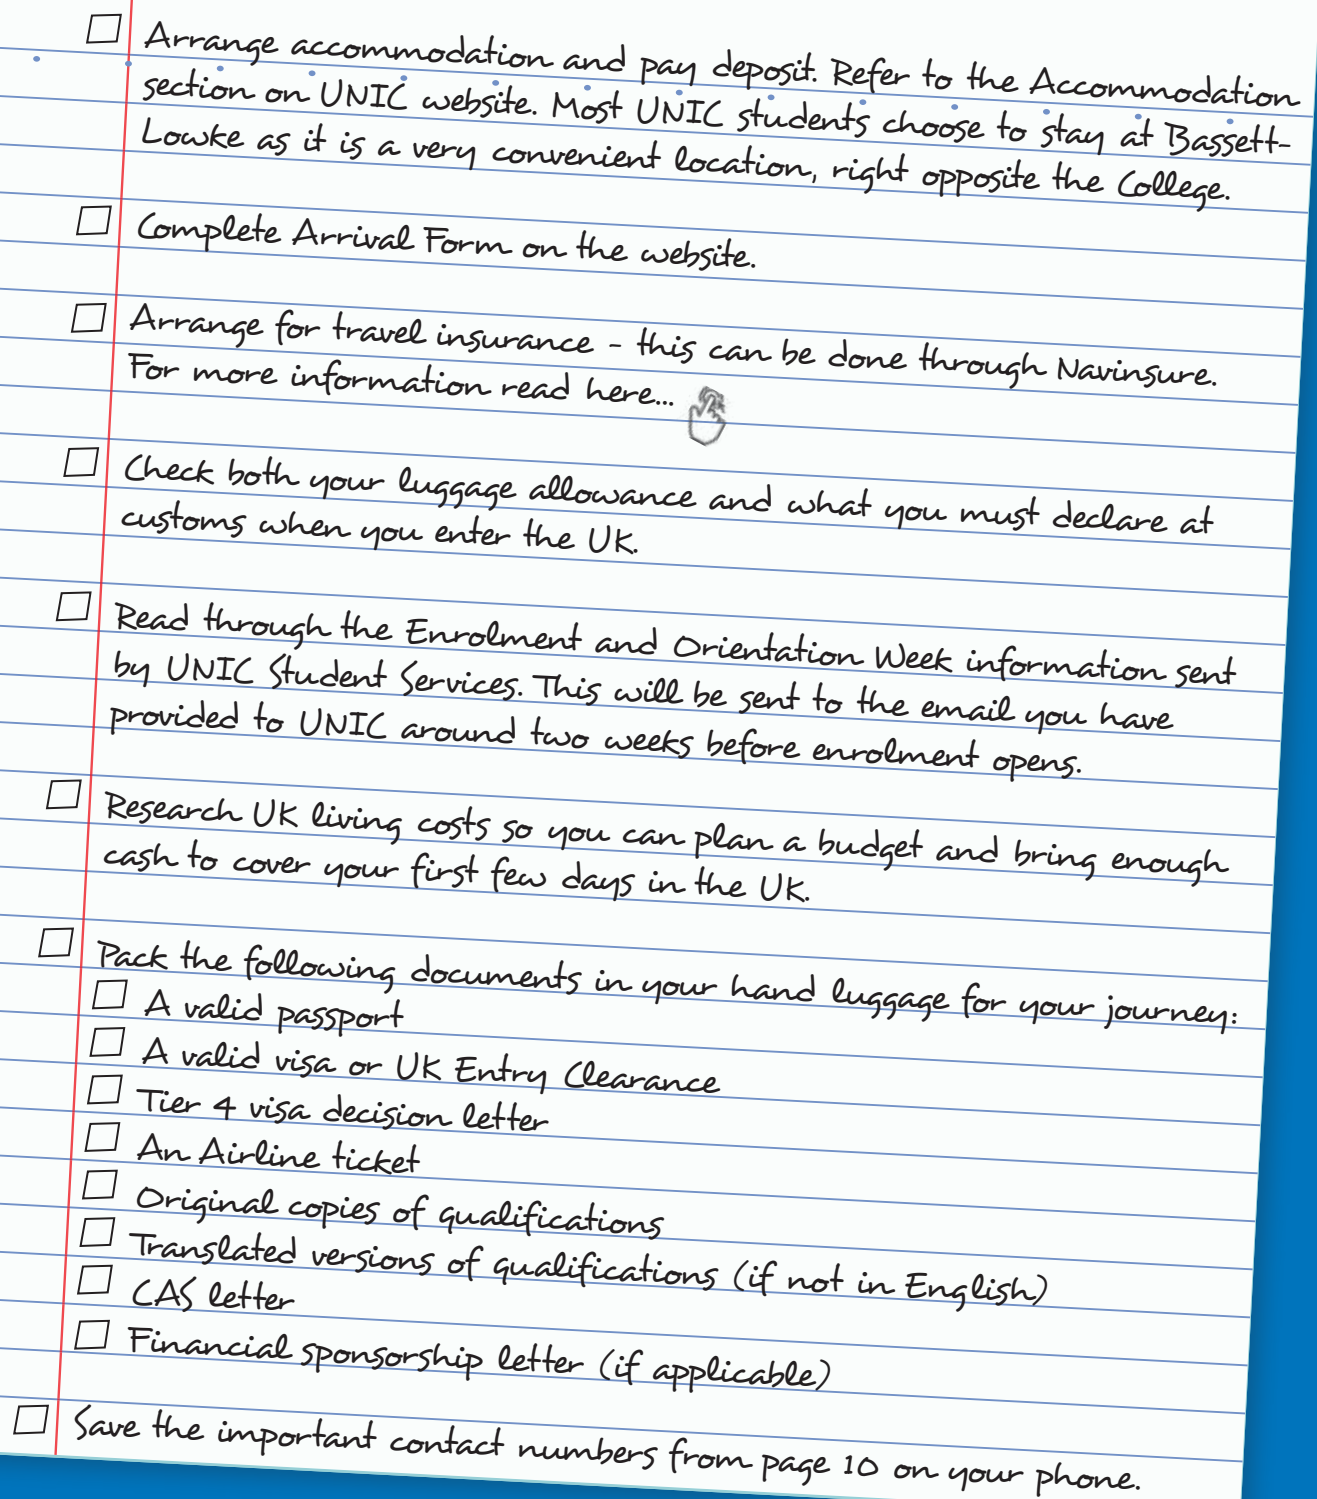 Arrange accommodation and pay deposit. Refer to the Accommodation
section on UNIC website. Most UNIC students choose to stay at Bassett-
Lowke as it is a very convenient location, right opposite the College.
Complete Arrival Form on the website.
Arrange for travel insurance - this can be done through Navinsure.
For more information read here...
Check both your luggage allowance and what you must declare at
customs when you enter the UK.
Read through the Enrolment and Orientation Week information sent
by UNIC Student Services. This will be sent to the email you have
provided to UNIC around two weeks before enrolment opens.
Research UK living costs so you can plan a budget and bring enough
cash to cover your first few days in the UK.
Pack the following documents in your hand luggage for your journey:
A valid passport
A valid visa or UK Entry Clearance
Tier 4 visa decision letter
An Airline ticket
Original copies of qualifications
Translated versions of qualifications (if not in English)
CAS letter
Financial sponsorship letter (if applicable)
Save the important contact numbers from page 10 on your phone.